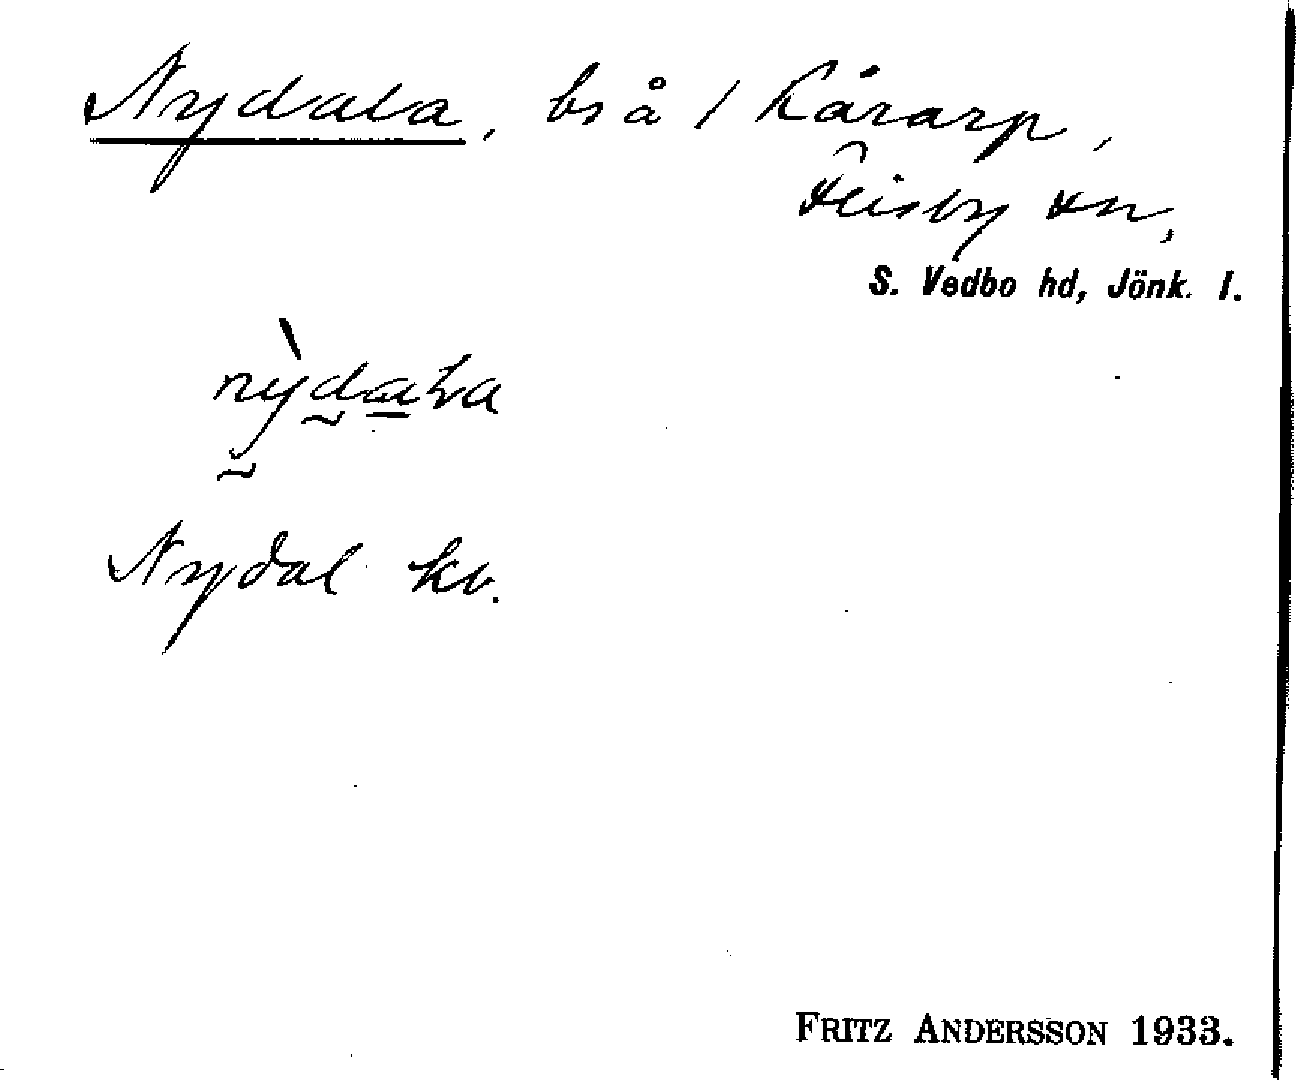 Nydala, bs å 1 Kårarp,
Flisby sn,
S. Vedbo hd, Jönk. l.
nỳdala
Nydal kv.
FRITZ ANDERSSON 1933.